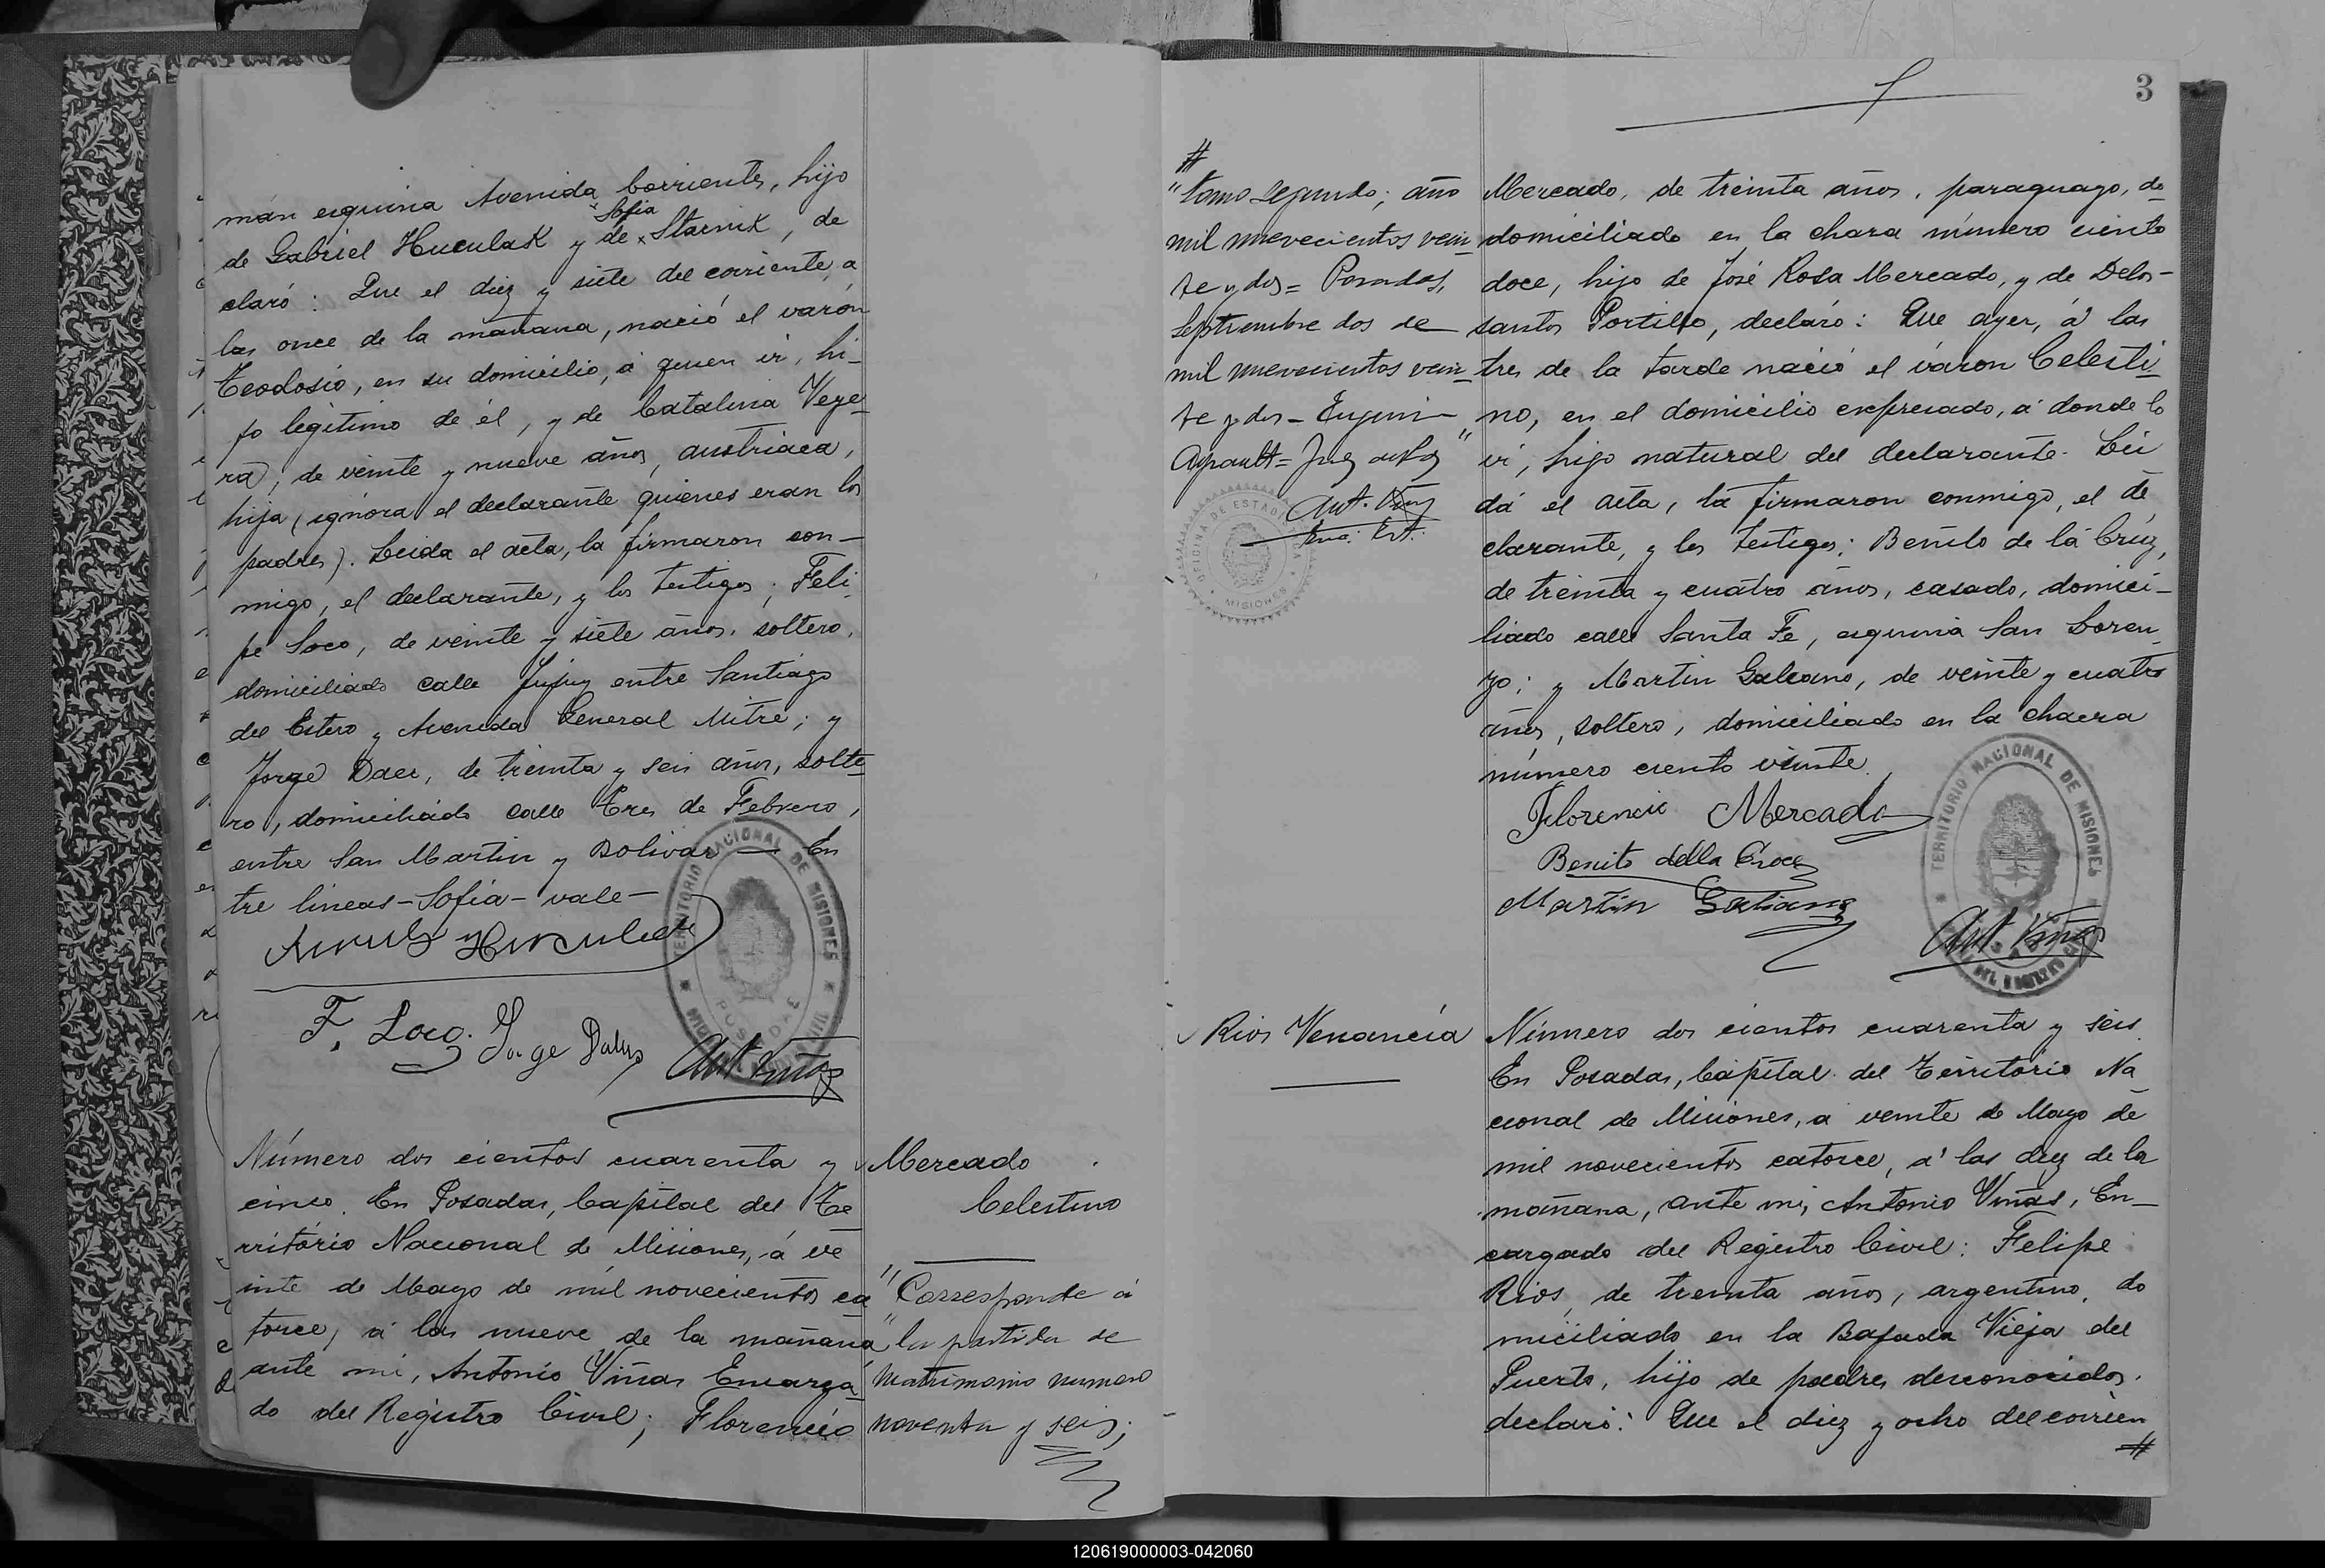 mán esquina Avenida Corrientes, hijo
de Gabriel Huculak y de Sofia Starnik, de
claró: Que el diez y siete del corriente, a
las once de la mañana, nació el varón
Teodosio, en su domicilio, á quien vi, hi-
jo legitimo de él, y de Catalina Veye-
ra, de veinte y nueve años, austriaca,
hija (ignora el declarante quienes eran los
padres). Leida el acta, la firmaron con-
migo, el declarante, y los testigos; Feli-
pe Loco, de veinte y siete años, soltero,
domiciliado calle Jujuy entre Santiago
del Estero y Avenida General Mitre; y
Jorge Daer, de treinta y seis años, solte-
ro, domiciliado calle Tres de Febrero,
entre San Martin y Bolivar — En
tre lineas - Sofia - vale -
F. Loco. Jorge
Ant Viñas
TERRITORIO NACIONAL DE MISIONES
POSADAS
Número dos cientos cuarenta y
cinco. En Posadas, Capital del Te
rritório Nacional de Misiones, á ve
inte de Mayo de mil novecientos ca
torce, á las nueve de la mañana
ante mi, Antonio Viñas Encarga-
do del Registro Civil; Florencio
Mercado
Celestino
"Corresponde á
la partida de
Matrimonio numero
noventa y seis;
3
#
"tomo segundo; año
mil nuevecientos vein-
te y dos = Posadas,
Septiembre dos de
mil nuevecientos vein-
te y dos -
Ant. Viñas
OFICINA DE ESTADISTICA
MISIONES
Mercado, de treinta años, paraguayo, do-
domiciliado en la chara número ciento
doce, hijo de José Rosa Mercado, y de Delos-
santos Portillo, declaró: Que ayer, á las
tres de la tarde nació el varon Celesti-
no, en el domicilio expresado, á donde lo
vi, hijo natural del declarante. Lei
dá el acta, la firmaron conmigo, el de
clarante, y los testigos; Benito de la Cruz,
de treinta y cuatro años, casado, domici-
liado calle Santa Fe, esquina San Loren
zo; y Martin Galeano, de veinte y cuatro
años, soltero, domiciliado en la chacra
número ciento veinte.
Florencio Mercado
Benito della Croce
Martin Galiano
Ant Viñas
TERRITORIO NACIONAL DE MISIONES
Rios Venancia
Número dos cientos cuarenta y seis
En Posadas, Capital del Territorio Na
cional de Misiones, a veinte de Mayo de
mil novecientos catorce, á las diez de la
mañana, ante mi, Antonio Viñas, En-
cargado del Registro Civil: Felipe
Rios, de treinta años, argentino, do
miciliado en la Bajada Vieja del
Puerto, hijo de padres desconocidos,
declaró: Que el diez y ocho del corrien
#
120619000003-042060